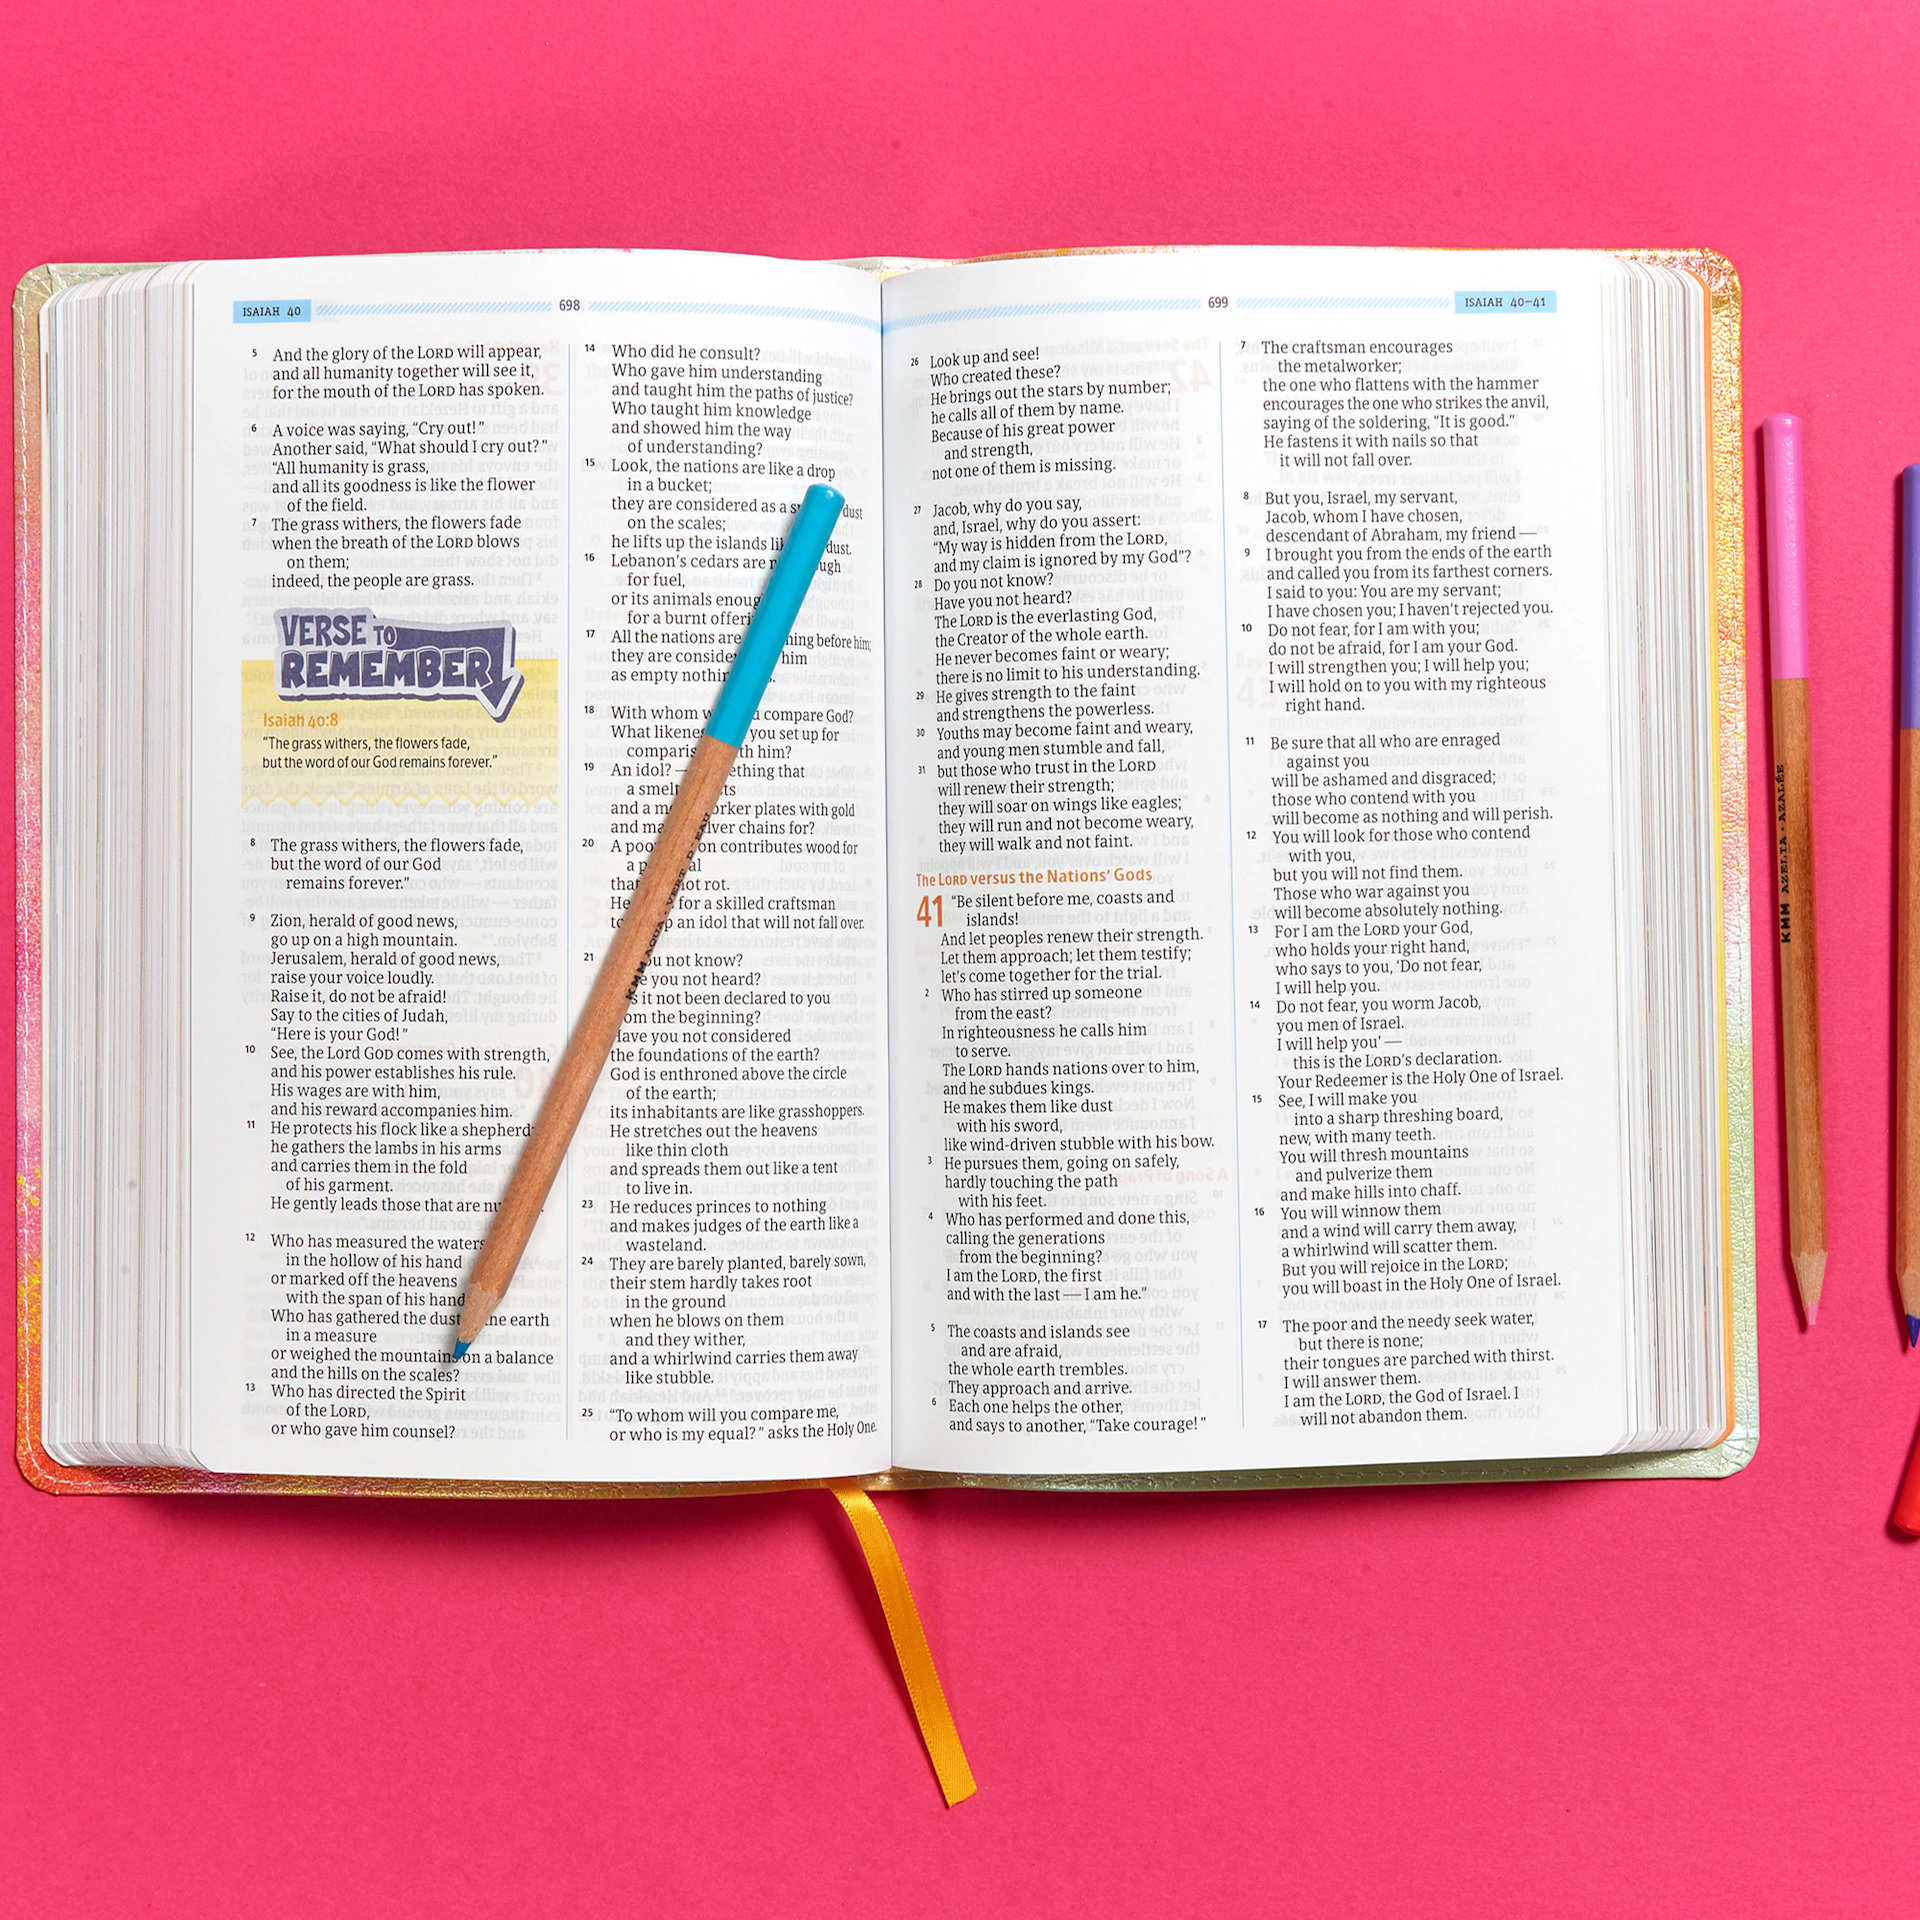 ISAIAH 40
698
5 And the glory of the LORD will appear,
and all humanity together will see it,
for the mouth of the LORD has spoken.
6 A voice was saying, “Cry out!”
Another said, “What should I cry out?”
“All humanity is grass,
and all its goodness is like the flower
of the field.
7 The grass withers, the flowers fade
when the breath of the LORD blows
on them;
indeed, the people are grass.
VERSE TO
REMEMBER
Isaiah 40:8
“The grass withers, the flowers fade,
but the word of our God remains forever.”
8 The grass withers, the flowers fade,
but the word of our God
remains forever.”
9 Zion, herald of good news,
go up on a high mountain.
Jerusalem, herald of good news,
raise your voice loudly.
Raise it, do not be afraid!
Say to the cities of Judah,
“Here is your God!”
10 See, the Lord GOD comes with strength,
and his power establishes his rule.
His wages are with him,
and his reward accompanies him.
11 He protects his flock like a shepherd;
he gathers the lambs in his arms
and carries them in the fold
of his garment.
He gently leads those that are
12 Who has measured the waters
in the hollow of his hand
or marked off the heavens
with the span of his hand
Who has gathered the dust the earth
in a measure
or weighed the mountains on a balance
and the hills on the scales?
13 Who has directed the Spirit
of the LORD,
or who gave him counsel?
14 Who did he consult?
Who gave him understanding
and taught him the paths of justice?
Who taught him knowledge
and showed him the way
of understanding?
15 Look, the nations are like a drop
in a bucket;
they are considered as a dust
on the scales;
he lifts up the islands dust.
16 Lebanon’s cedars are
for fuel,
or its animals
for a burnt
17 All the nations are before him;
they are him
as empty
18 With whom compare God?
What you set up for
him?
19 An idol? —
a
and a plates with gold
and chains for?
20 A contributes wood for
a
not rot.
He for a skilled craftsman
an idol that will not fall over.
21 not know?
you not heard?
it not been declared to you
the beginning?
Have you not considered
the foundations of the earth?
God is enthroned above the circle
of the earth;
its inhabitants are like grasshoppers.
He stretches out the heavens
like thin cloth
and spreads them out like a tent
to live in.
23 He reduces princes to nothing
and makes judges of the earth like a
wasteland.
24 They are barely planted, barely sown,
their stem hardly takes root
in the ground
when he blows on them
and they wither,
and a whirlwind carries them away
like stubble.
25 “To whom will you compare me,
or who is my equal?” asks the Holy One.
KMM AQUA · VERT D'EAU
699
ISAIAH 40–41
26 Look up and see!
Who created these?
He brings out the stars by number;
he calls all of them by name.
Because of his great power
and strength,
not one of them is missing.
27 Jacob, why do you say,
and, Israel, why do you assert:
“My way is hidden from the LORD,
and my claim is ignored by my God”?
28 Do you not know?
Have you not heard?
The LORD is the everlasting God,
the Creator of the whole earth.
He never becomes faint or weary;
there is no limit to his understanding.
29 He gives strength to the faint
and strengthens the powerless.
30 Youths may become faint and weary,
and young men stumble and fall,
31 but those who trust in the LORD
will renew their strength;
they will soar on wings like eagles;
they will run and not become weary,
they will walk and not faint.
The LORD versus the Nations’ Gods
41 “Be silent before me, coasts and
islands!
And let peoples renew their strength.
Let them approach; let them testify;
let’s come together for the trial.
2 Who has stirred up someone
from the east?
In righteousness he calls him
to serve.
The LORD hands nations over to him,
and he subdues kings.
He makes them like dust
with his sword,
like wind-driven stubble with his bow.
3 He pursues them, going on safely,
hardly touching the path
with his feet.
4 Who has performed and done this,
calling the generations
from the beginning?
I am the LORD, the first
and with the last — I am he.”
5 The coasts and islands see
and are afraid,
the whole earth trembles.
They approach and arrive.
6 Each one helps the other,
and says to another, “Take courage!”
7 The craftsman encourages
the metalworker;
the one who flattens with the hammer
encourages the one who strikes the anvil,
saying of the soldering, “It is good.”
He fastens it with nails so that
it will not fall over.
8 But you, Israel, my servant,
Jacob, whom I have chosen,
descendant of Abraham, my friend —
9 I brought you from the ends of the earth
and called you from its farthest corners.
I said to you: You are my servant;
I have chosen you; I haven’t rejected you.
10 Do not fear, for I am with you;
do not be afraid, for I am your God.
I will strengthen you; I will help you;
I will hold on to you with my righteous
right hand.
11 Be sure that all who are enraged
against you
will be ashamed and disgraced;
those who contend with you
will become as nothing and will perish.
12 You will look for those who contend
with you,
but you will not find them.
Those who war against you
will become absolutely nothing.
13 For I am the LORD your God,
who holds your right hand,
who says to you, ‘Do not fear,
I will help you.
14 Do not fear, you worm Jacob,
you men of Israel.
I will help you’ —
this is the LORD’s declaration.
Your Redeemer is the Holy One of Israel.
15 See, I will make you
into a sharp threshing board,
new, with many teeth.
You will thresh mountains
and pulverize them
and make hills into chaff.
16 You will winnow them
and a wind will carry them away,
a whirlwind will scatter them.
But you will rejoice in the LORD;
you will boast in the Holy One of Israel.
17 The poor and the needy seek water,
but there is none;
their tongues are parched with thirst.
I will answer them.
I am the LORD, the God of Israel. I
will not abandon them.
KMM AZELIA · AZALÉE